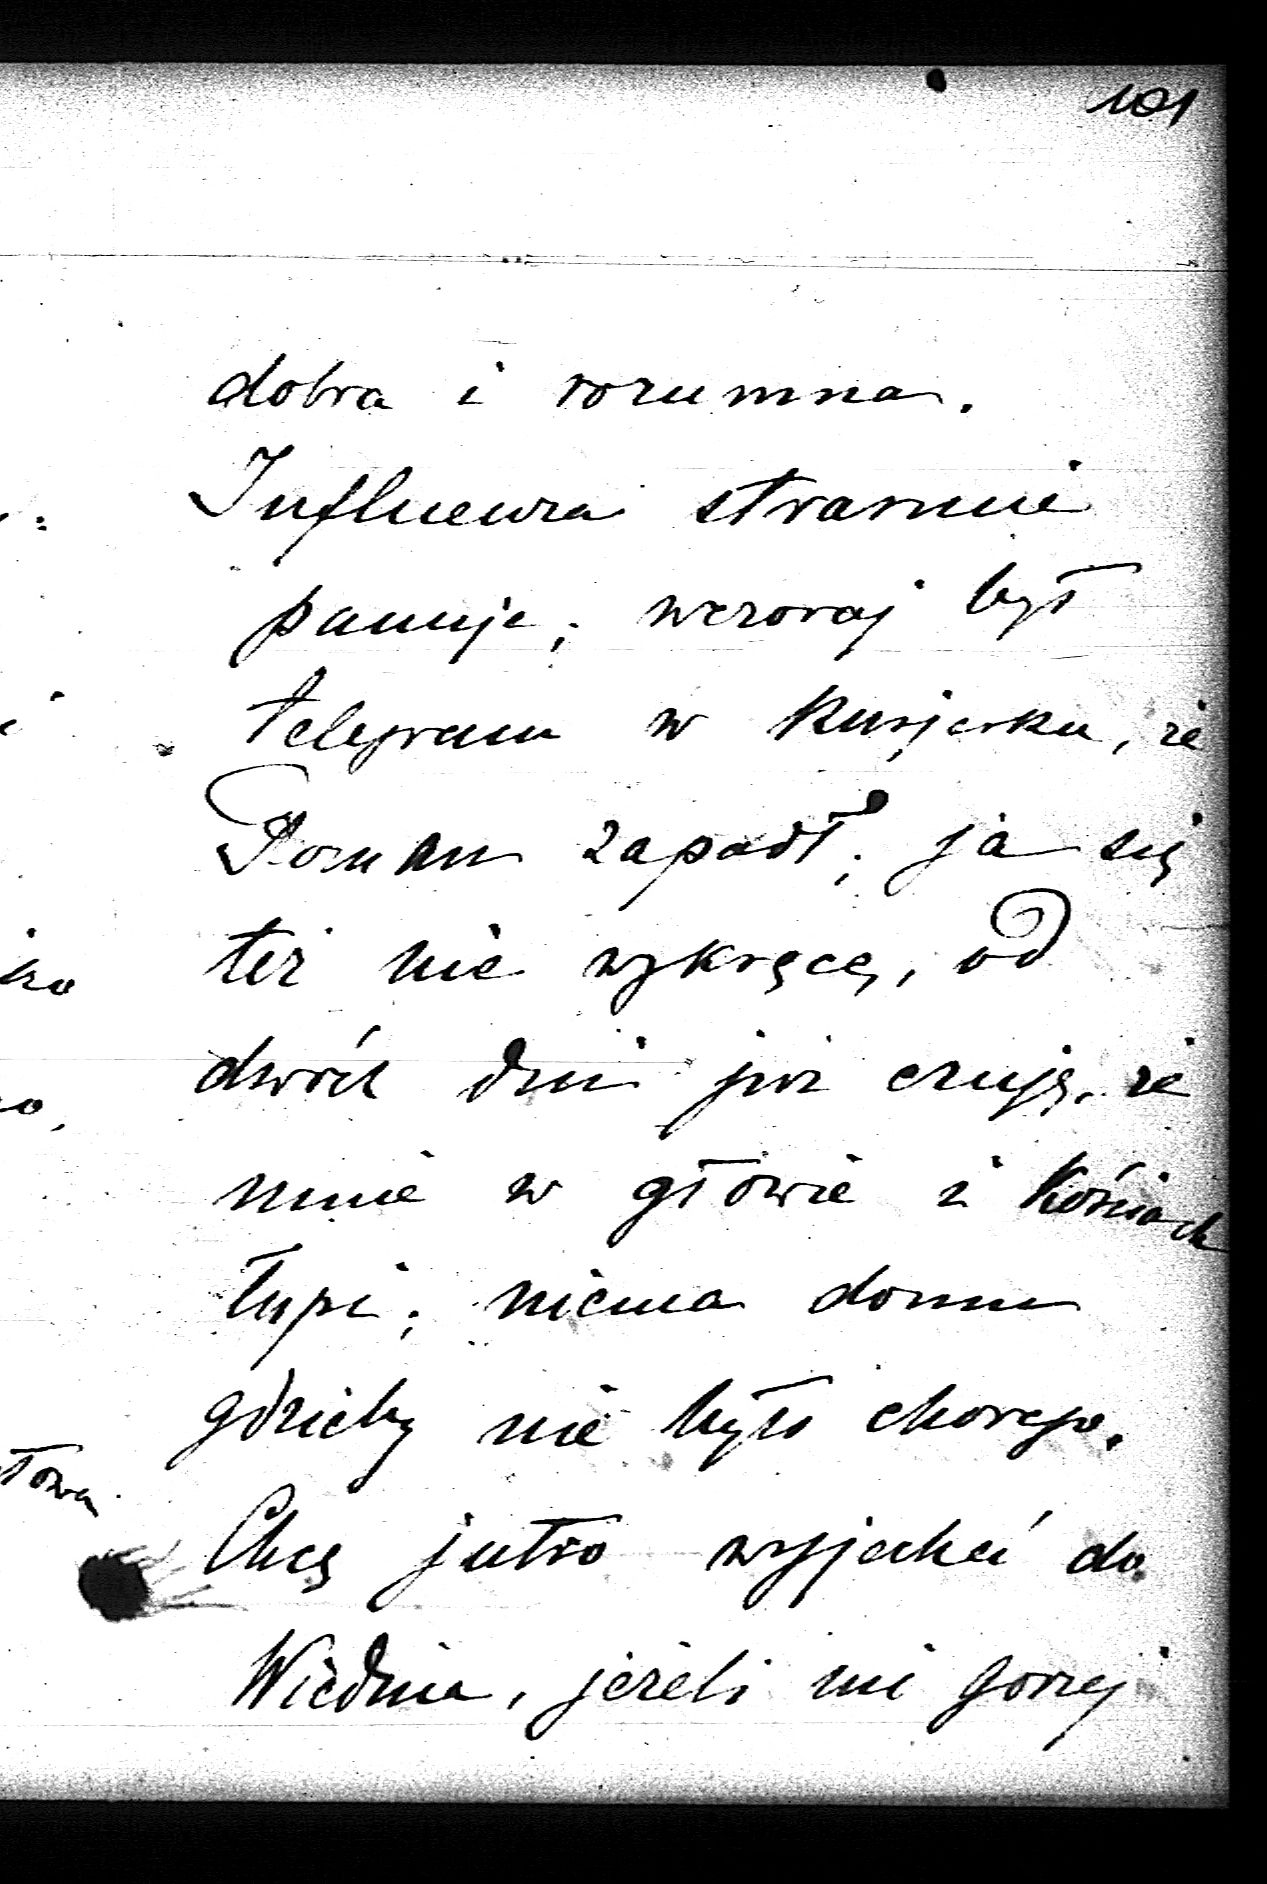 101
dobra i rozumna.
Influenza strasznie
panuje; wczoraj był
telegram w Kurjerku, że
Roman zapadł; ja się
też nie wykręcę, od
dwóch dni już czuję, że
mnie w głowie i kościach
łupi; niema domu
gdzieby nie było chorego.
Chcę jutro wyjechać do
Wiednia, jeżeli mi gorzej